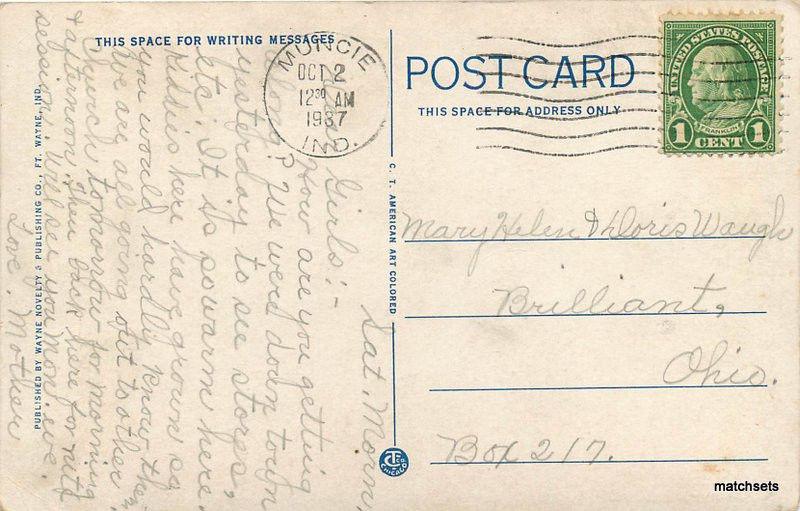 THIS SPACE FOR WRITING MESSAGES
MUNCIE
OCT 2
12 30 AM
1937
IND.
POST CARD
THIS SPACE FOR ADDRESS ONLY
UNITED STATES POSTAGE
FRANKLIN
1 CENT 1
Mary Helen & Doris Waugh
Brilliant,
Ohio.
Box 217.
Sat. Morn.
Girls:-
How are you getting
along? We were down town
yesterday to see stores,
etc. It is so warm here.
Kiddies here have grown so
you would hardly know them
We are all going out to other
church tomorrow for morning
& afternoon, then back here for nite
session. Will see you Mon. eve.
Love, Mother
PUBLISHED BY WAYNE NOVELTY & PUBLISHING CO., FT. WAYNE, IND.
C. T. AMERICAN ART COLORED
CHICAGO
matchsets